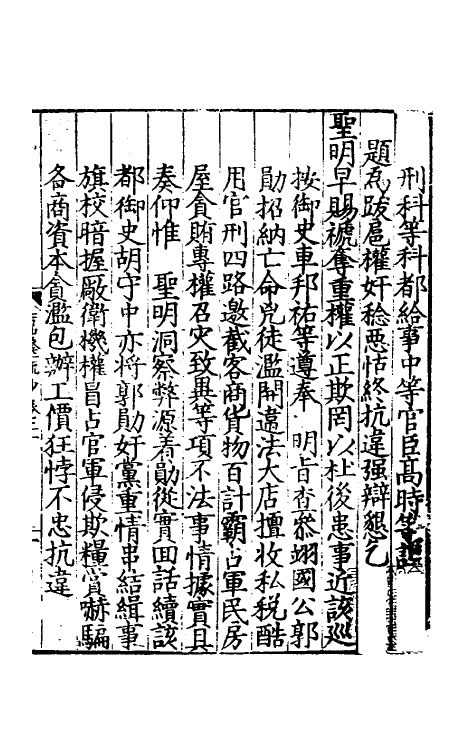 刑科等科都給事中等官臣高時等謹
題爲跋扈權奸稔惡怙終抗違强辯懇乞
聖明早賜褫奪重權以正欺罔以杜後患事近該巡
按御史車邦祐等遵奉 明旨查叅翊國公郭
勛招納亡命兇徒濫開違法大店擅收私稅酷
用官刑四路邀截客商貨物百計霸占軍民房
屋貪賄專權召灾致異等項不法事情據實具
奏仰惟 聖明洞察弊源着勛從實回話續該
都御史胡守中亦將郭勛奸黨重情串結緝事
旗校暗握廠衛機權冒占官軍侵欺糧賞嚇騙
各商資本貪濫包辦工價狂悖不忠抗違